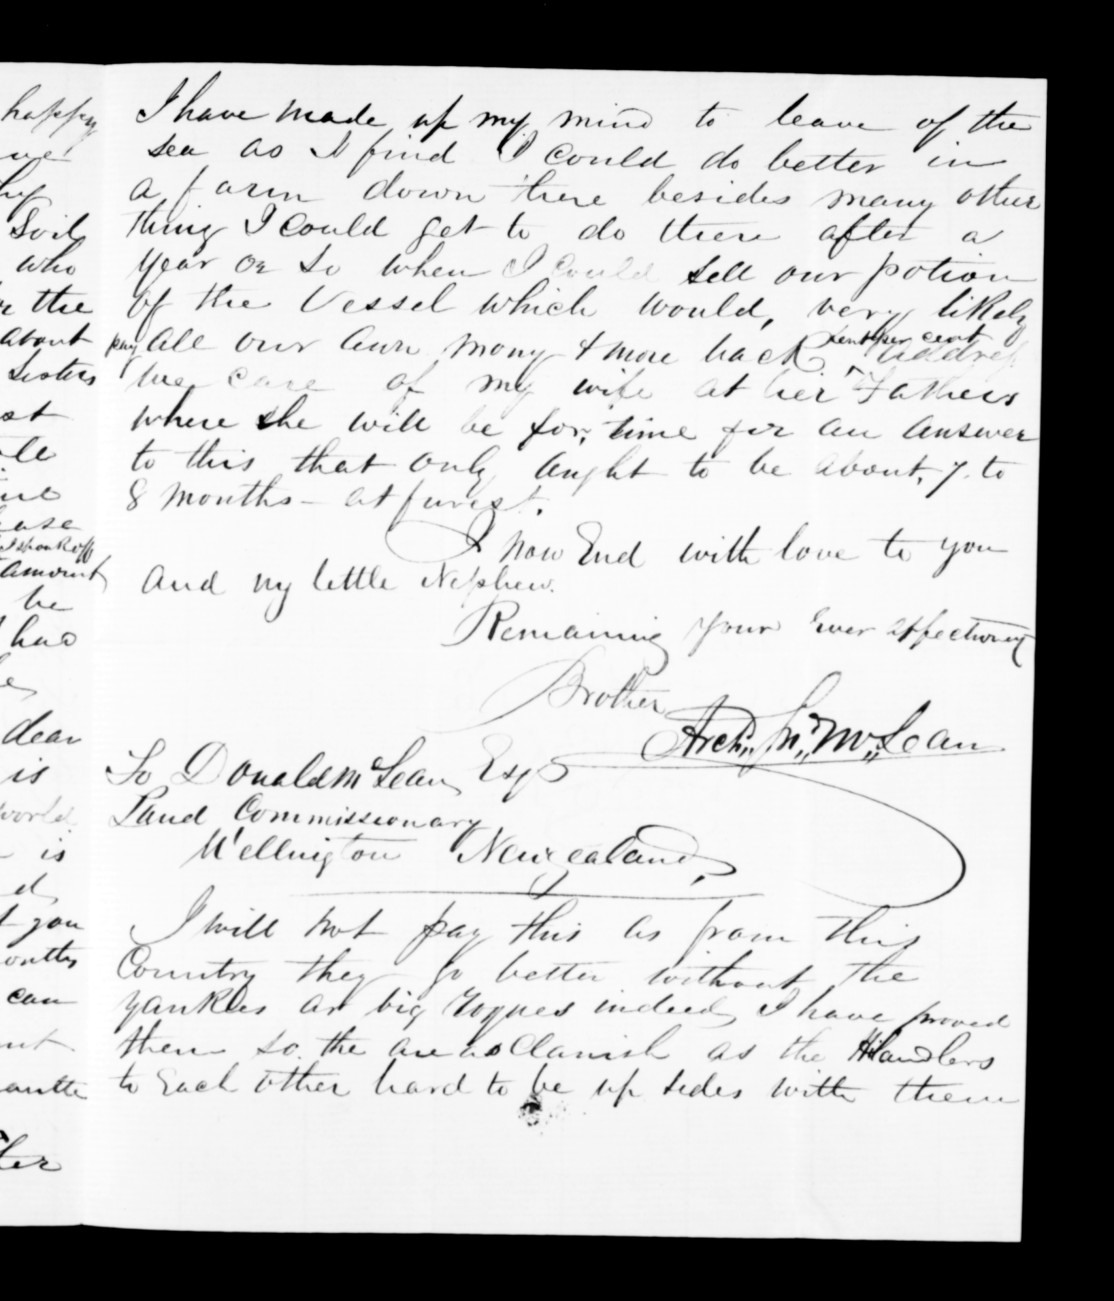 happy
we
Soil
who
the
about
Sisters
amount
be
had
dear
is
world
is
you
can
I have made up my mind to leave of the
sea as I find I could do better in
a farm down there besides many other
thing I could get to do there after a
year or so when I could sell our potion
of the Vessel which would, very likely
pay all our own mony & more back
cent address
me care of my wife at her Fathers
where she will be for, time for an answer
to this that only aught to be about, 7 to
8 months - at furest.
I now End with love to you
and my little Nephew.
Remaining your Ever affectionat
Brother
Archd. Jn. Mc. Lean
To Donald McLean Esqr
Land Commissionary
Wellington Newzealand,
I will not pay this as from this
Country they go better without the
yankees ar big rogues indeed, I have proved
them so. the are as Clanish as the Hilandlers
to Each other hard to be up sides with them